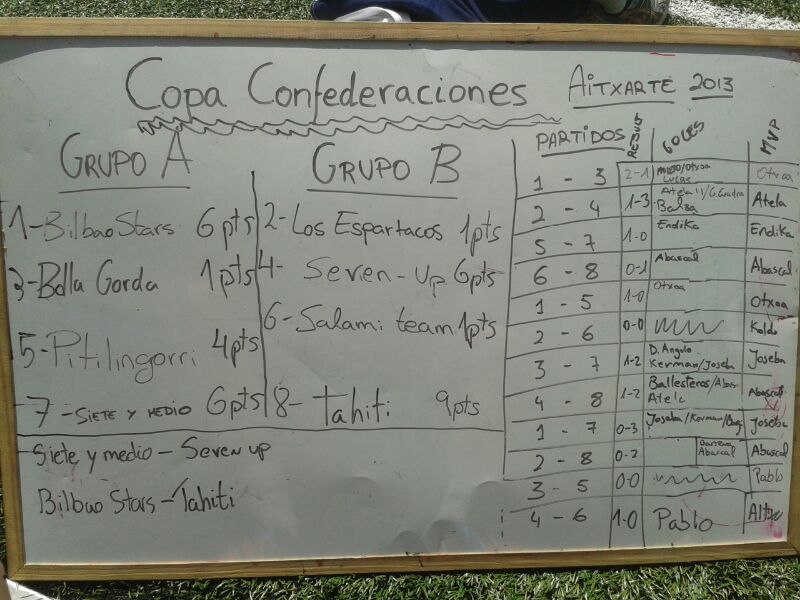 Copa Confederaciones
AITXARTE 2013
GRUPO A
1-Bilbao Stars 6pts
3-Bolla Gorda 1pts
5-Pitilingorri 4pts
7-SIETE Y MEDIO 6pts
GRUPO B
2-Los Espartacos 1pts
4- Seven-up 6pts
6-Salami team 1pts
8-Tahiti 9pts
Siete y medio-Seven up
Bilbao Stars-Tahiti
PARTIDOS RESULT GOLES MVP
1 - 3 2-1 /Otxoa Otxoa
Lucas
2 - 4 1-3 Atela II/G. Atela
Balza
5 - 7 1-0 Endika Endika
6 - 8 0-1 Abascal Abascal
1 - 5 1-0 Otxoa Otxoa
2 - 6 0-0 Koldo
3 - 7 1-2 D. Angulo Joseba
Kerman/Joseba
4 - 8 1-2 Ballesteros/ Abascal
1 - 7 0-3 Joseba/Kerman/ Joseba
2 - 8 0-2 Abascal Abascal
3 - 5 0-0 Pablo
4 - 6 1-0 Pablo